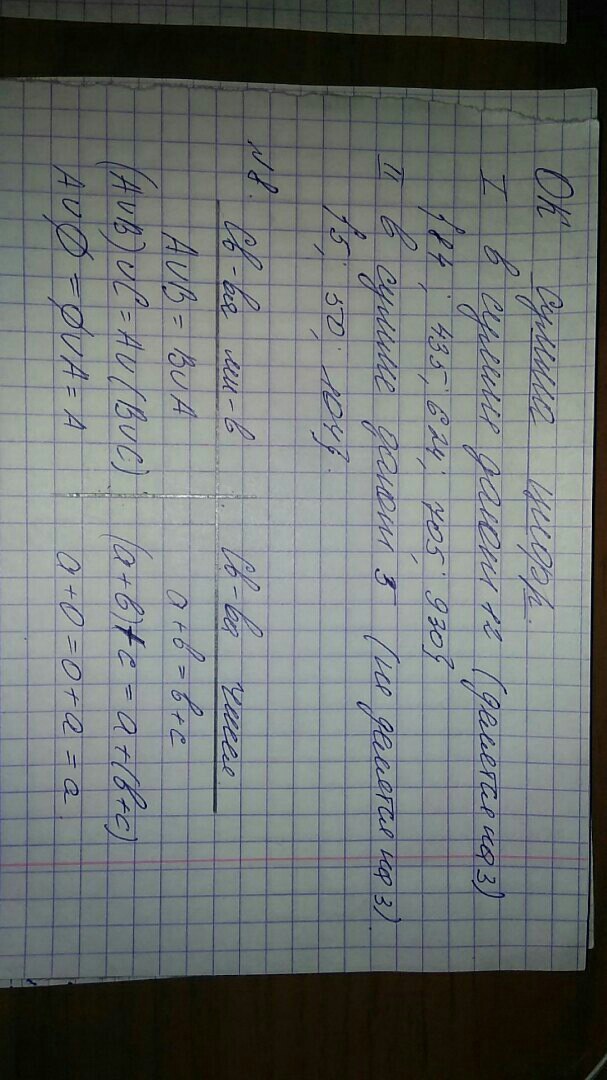 ОК сумма цифр.
I в сумме дают 12 (делится на 3)
{84; 435; 624; 705; 930}
II в сумме дают 5 (не делится на 3)
{5; 50; 104}.
№8. Св-ва мн-в Св-ва чисел.
A∪B = B∪A a+b=b+c
(A∪B)∪C=A∪(B∪C) (a+b)+c=a+(b+c)
A∪∅=∅∪A=A a+0=0+a=a.